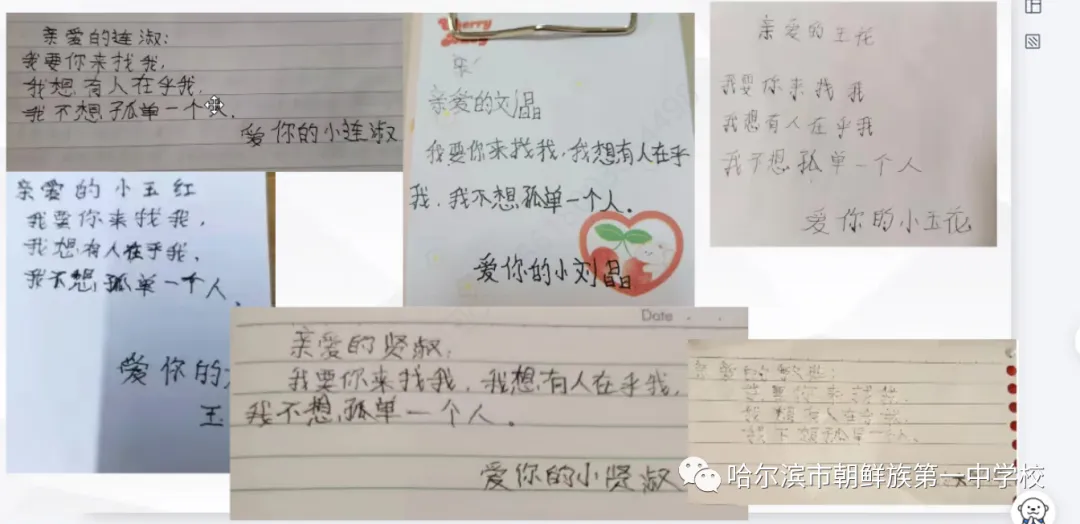 亲爱的连淑:
我要你来找我,
我想有人在乎我,
我不想孤单一个
爱你的小连淑
亲爱的刘晶
我要你来找我,我想有人在乎
我,我不想孤单一个人。
爱你的小刘晶
亲爱的玉花
我要你来找我
我想有人在乎我
我不想孤单一个人
爱你的小玉花
亲爱的小玉红
我要你来找我,
我想有人在乎我,
我不想孤单一个人,
爱你的
玉
Date
亲爱的贤淑:
我要你来找我,我想有人在乎我,
我不想孤单一个人。
爱你的小贤淑
我要你来找我,
我想有人在乎我,
我不想孤单一个人.
哈尔滨市朝鲜族第一中学校